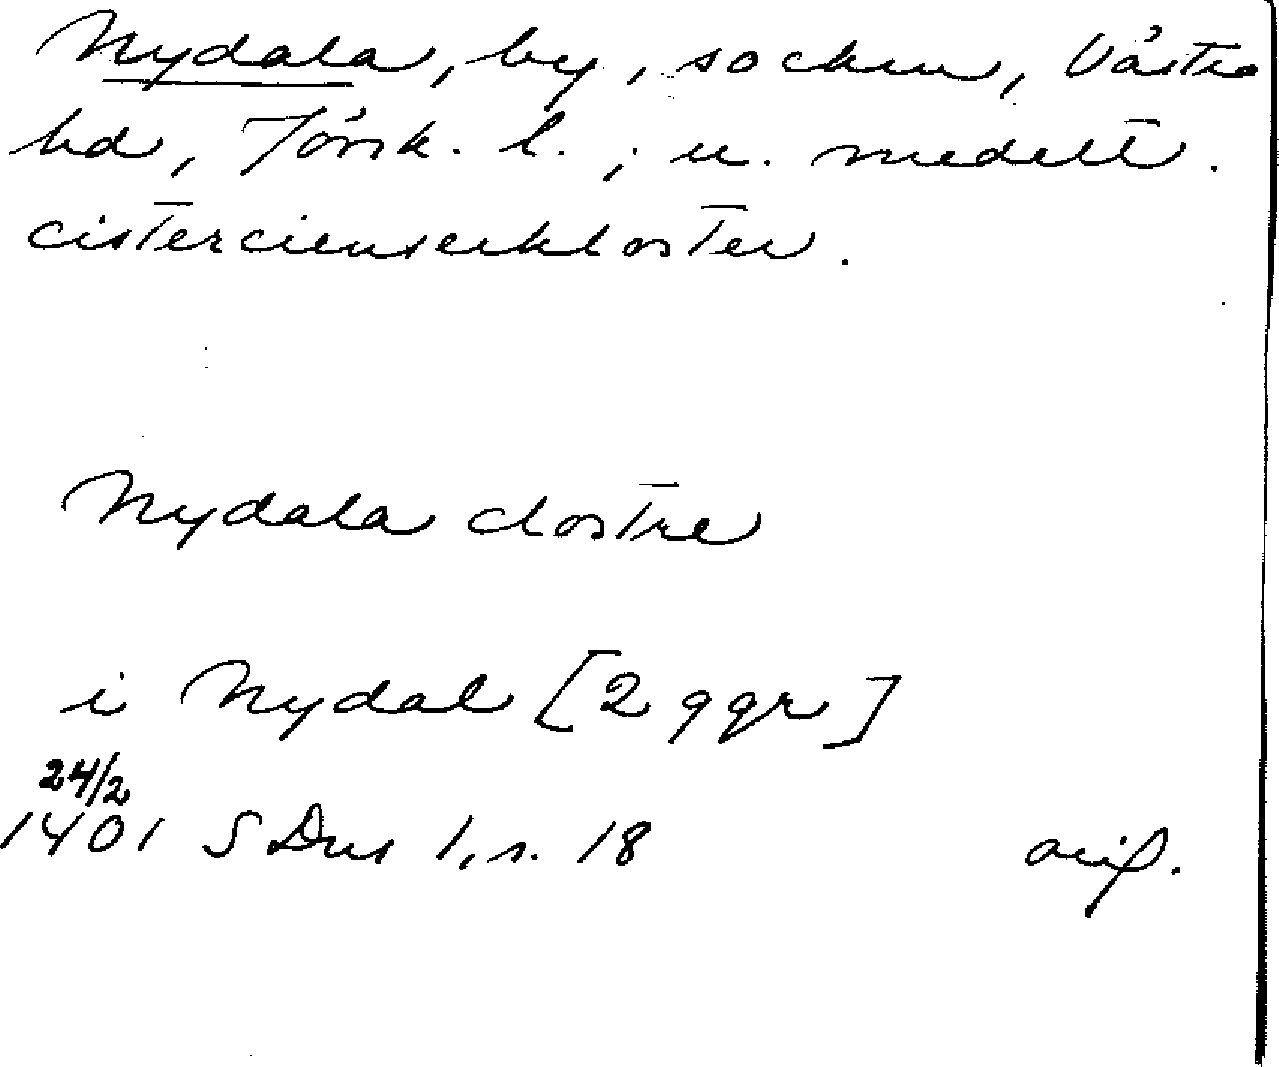 Nydala, by, socken, Västra
hd, Jönk. l. ; u. medelt.
cistercienserkloster.
Nydala clostre
i Nydal [2 ggr]
24/2
1401 SDns 1, s. 18 orig.